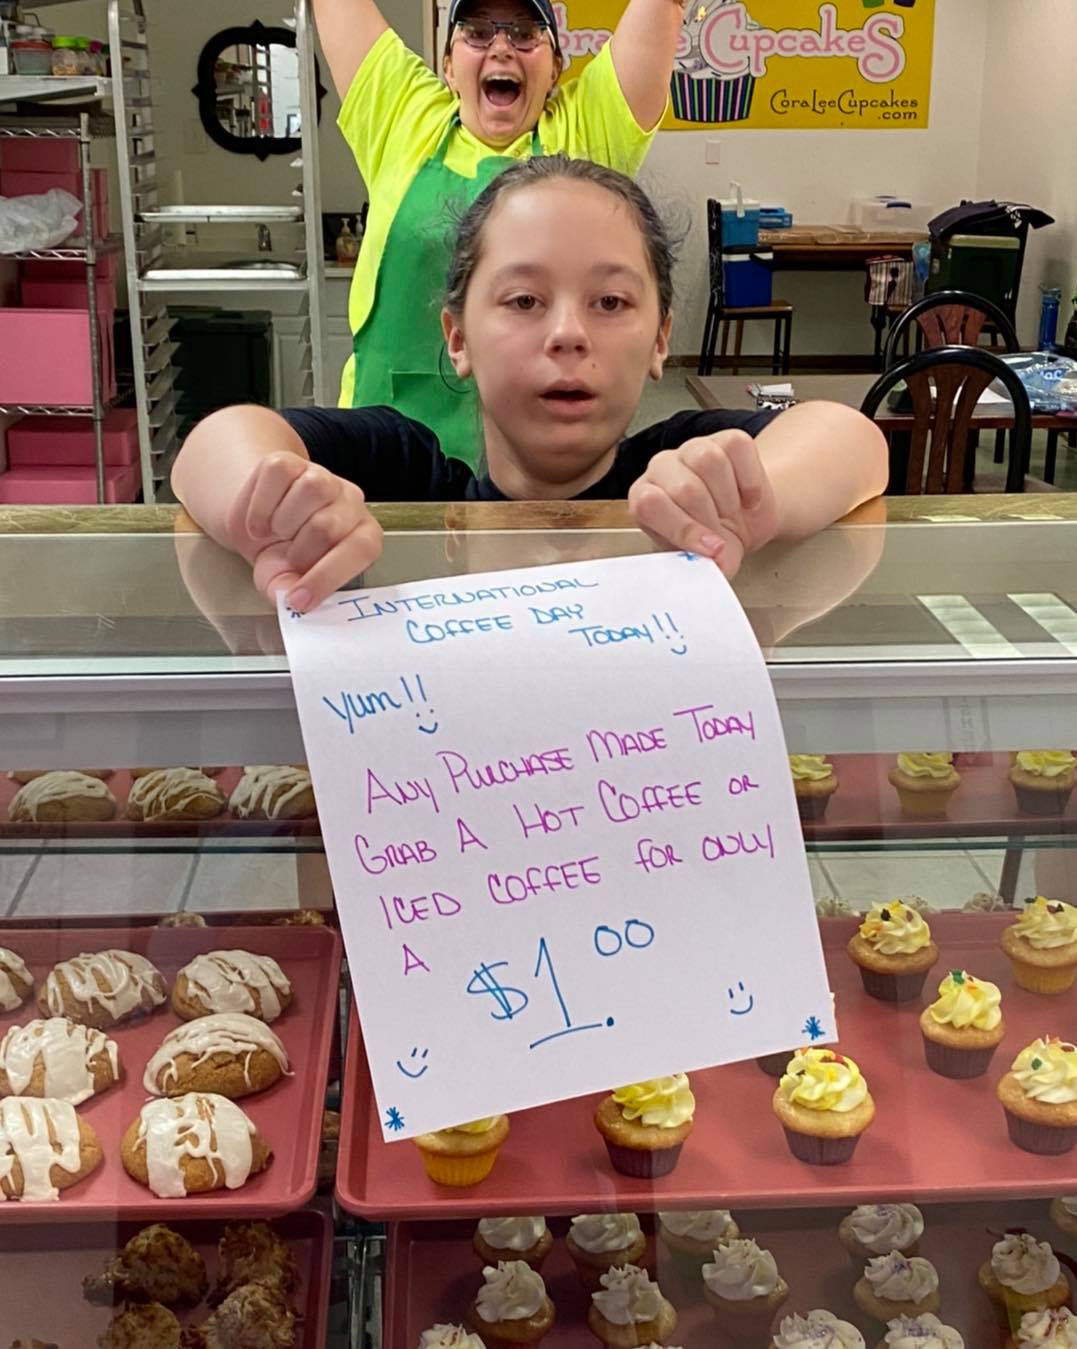 CupcakeS
CoraLeeCupcakes
.com
INTERNATIONAL
COFFEE DAY
TODAY!!
Yum!!
ANY PURCHASE MADE TODAY
GRAB A HOT COFFEE OR
ICED COFFEE FOR ONLY
A
$1.00